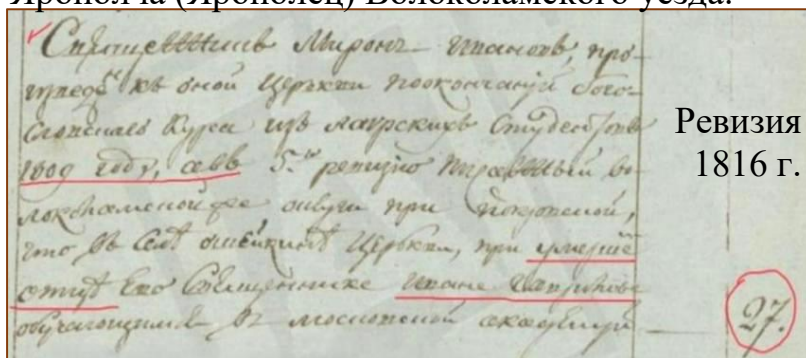 Ярополча (Ярополец) Волоколамского уезда.
Священникъ Миронъ Ивановъ, про-
къ оной Церькви поокончаніи бого-
словскаго Курса изъ лаврскихъ Студентовъ
1809 году, а въ 5.ю ревизію
округи при покровской,
что въ Селѣ Церькви, при умершемъ
отцѣ Его Священнике Иване Гавриловѣ
обучающимся въ московской академіи
27.
Ревизия
1816 г.